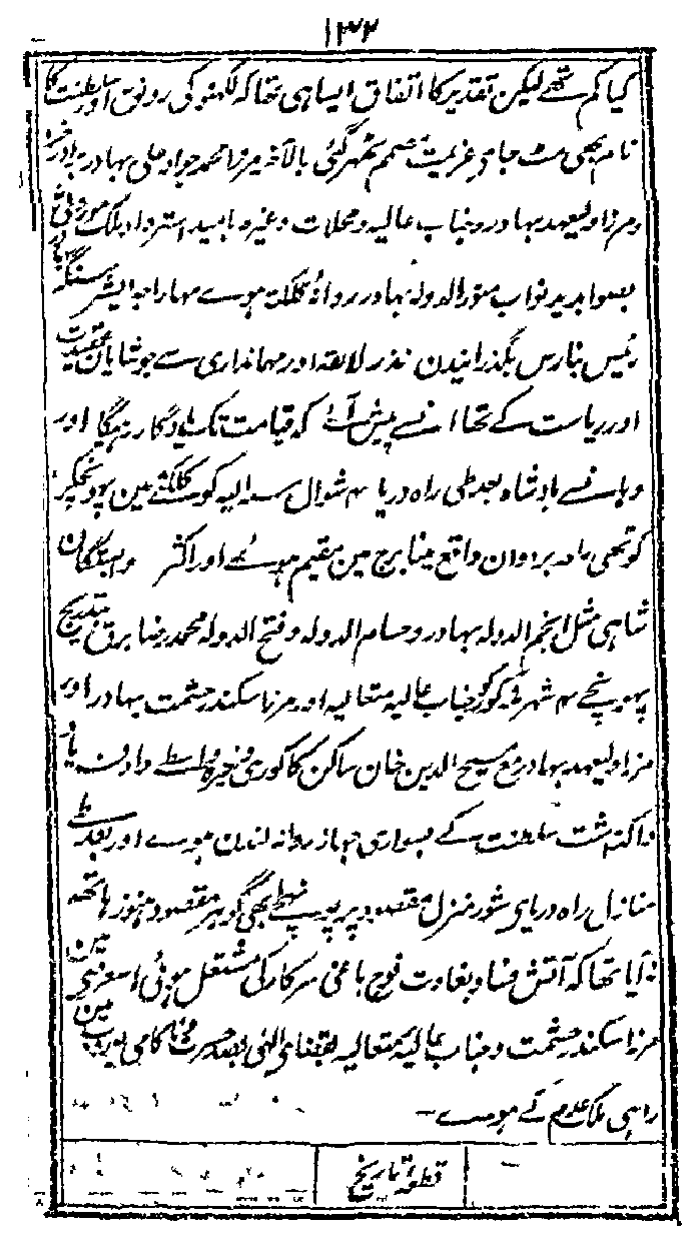 ۱۳۲
کیا کم تھے لیکن تقدیر کا اتفاق ایسا ہی تھا کہ لکھنؤ کی رونق اور سلطنت کا
نام بھی مٹ جاے عزیمت مصمم ٹھہر گئی بالآخر مرزا محمد جواد علی بہادر برادر خورد
و مرزا ولیعہد بہادر و جناب عالیہ و محلات وغیرہ بامید استرداد ملک موروثی
بصوابدید نواب منور الدولہ بہادر روانۂ کلکتہ ہوے مہاراجہ ایشر سنگہ بہادر
رئیس بنارس بگذرانیدن نذر لائقہ اور مہمانداری سے جو شایان عقیدت
اور ریاست کے تھا انسے پیش آے کہ قیامت تک یادگار رہیگا اور
وہانسے بادشاہ بعد طی راہ دریا ۴ شوال سنہ الیہ کو کلکتے مین پہونچکر
کوٹھی راجہ بردوان واقع مٹیا برج مین مقیم ہوے اور اکثر وابستگان
شاہی مثل انجم الدولہ بہادر و حسام الدولہ و فتح الدولہ محمد رضا برق بتدریج
پہونچے ۴ شہر کو جناب عالیہ متعالیہ اور مرزا سکندر حشمت بہادر اور
مرزا ولیعہد بہادر مع مسیح الدین خان ساکن کاکوری وغیرہ واسطے دادن
ذاگذشت سلطنت کے بسواری جہاز روانہ لندن ہوے اور بعد طے
منازل راہ دریای شور منزل مقصود پر پہنچے بھی گوہر مقصود ہنوز ہاتھہ
نہ آیا تھا کہ آتش فساد و بغاوت فوج باغی سرکار کی مشتعل ہوئی اس عرصے مین
مرزا سکندر حشمت و جناب عالیہ متعالیہ بقضای الہی بصد حسرت و ناکامی یورپ مین
راہی ملک عدم کے ہوے۔
قطعہ تاریخ